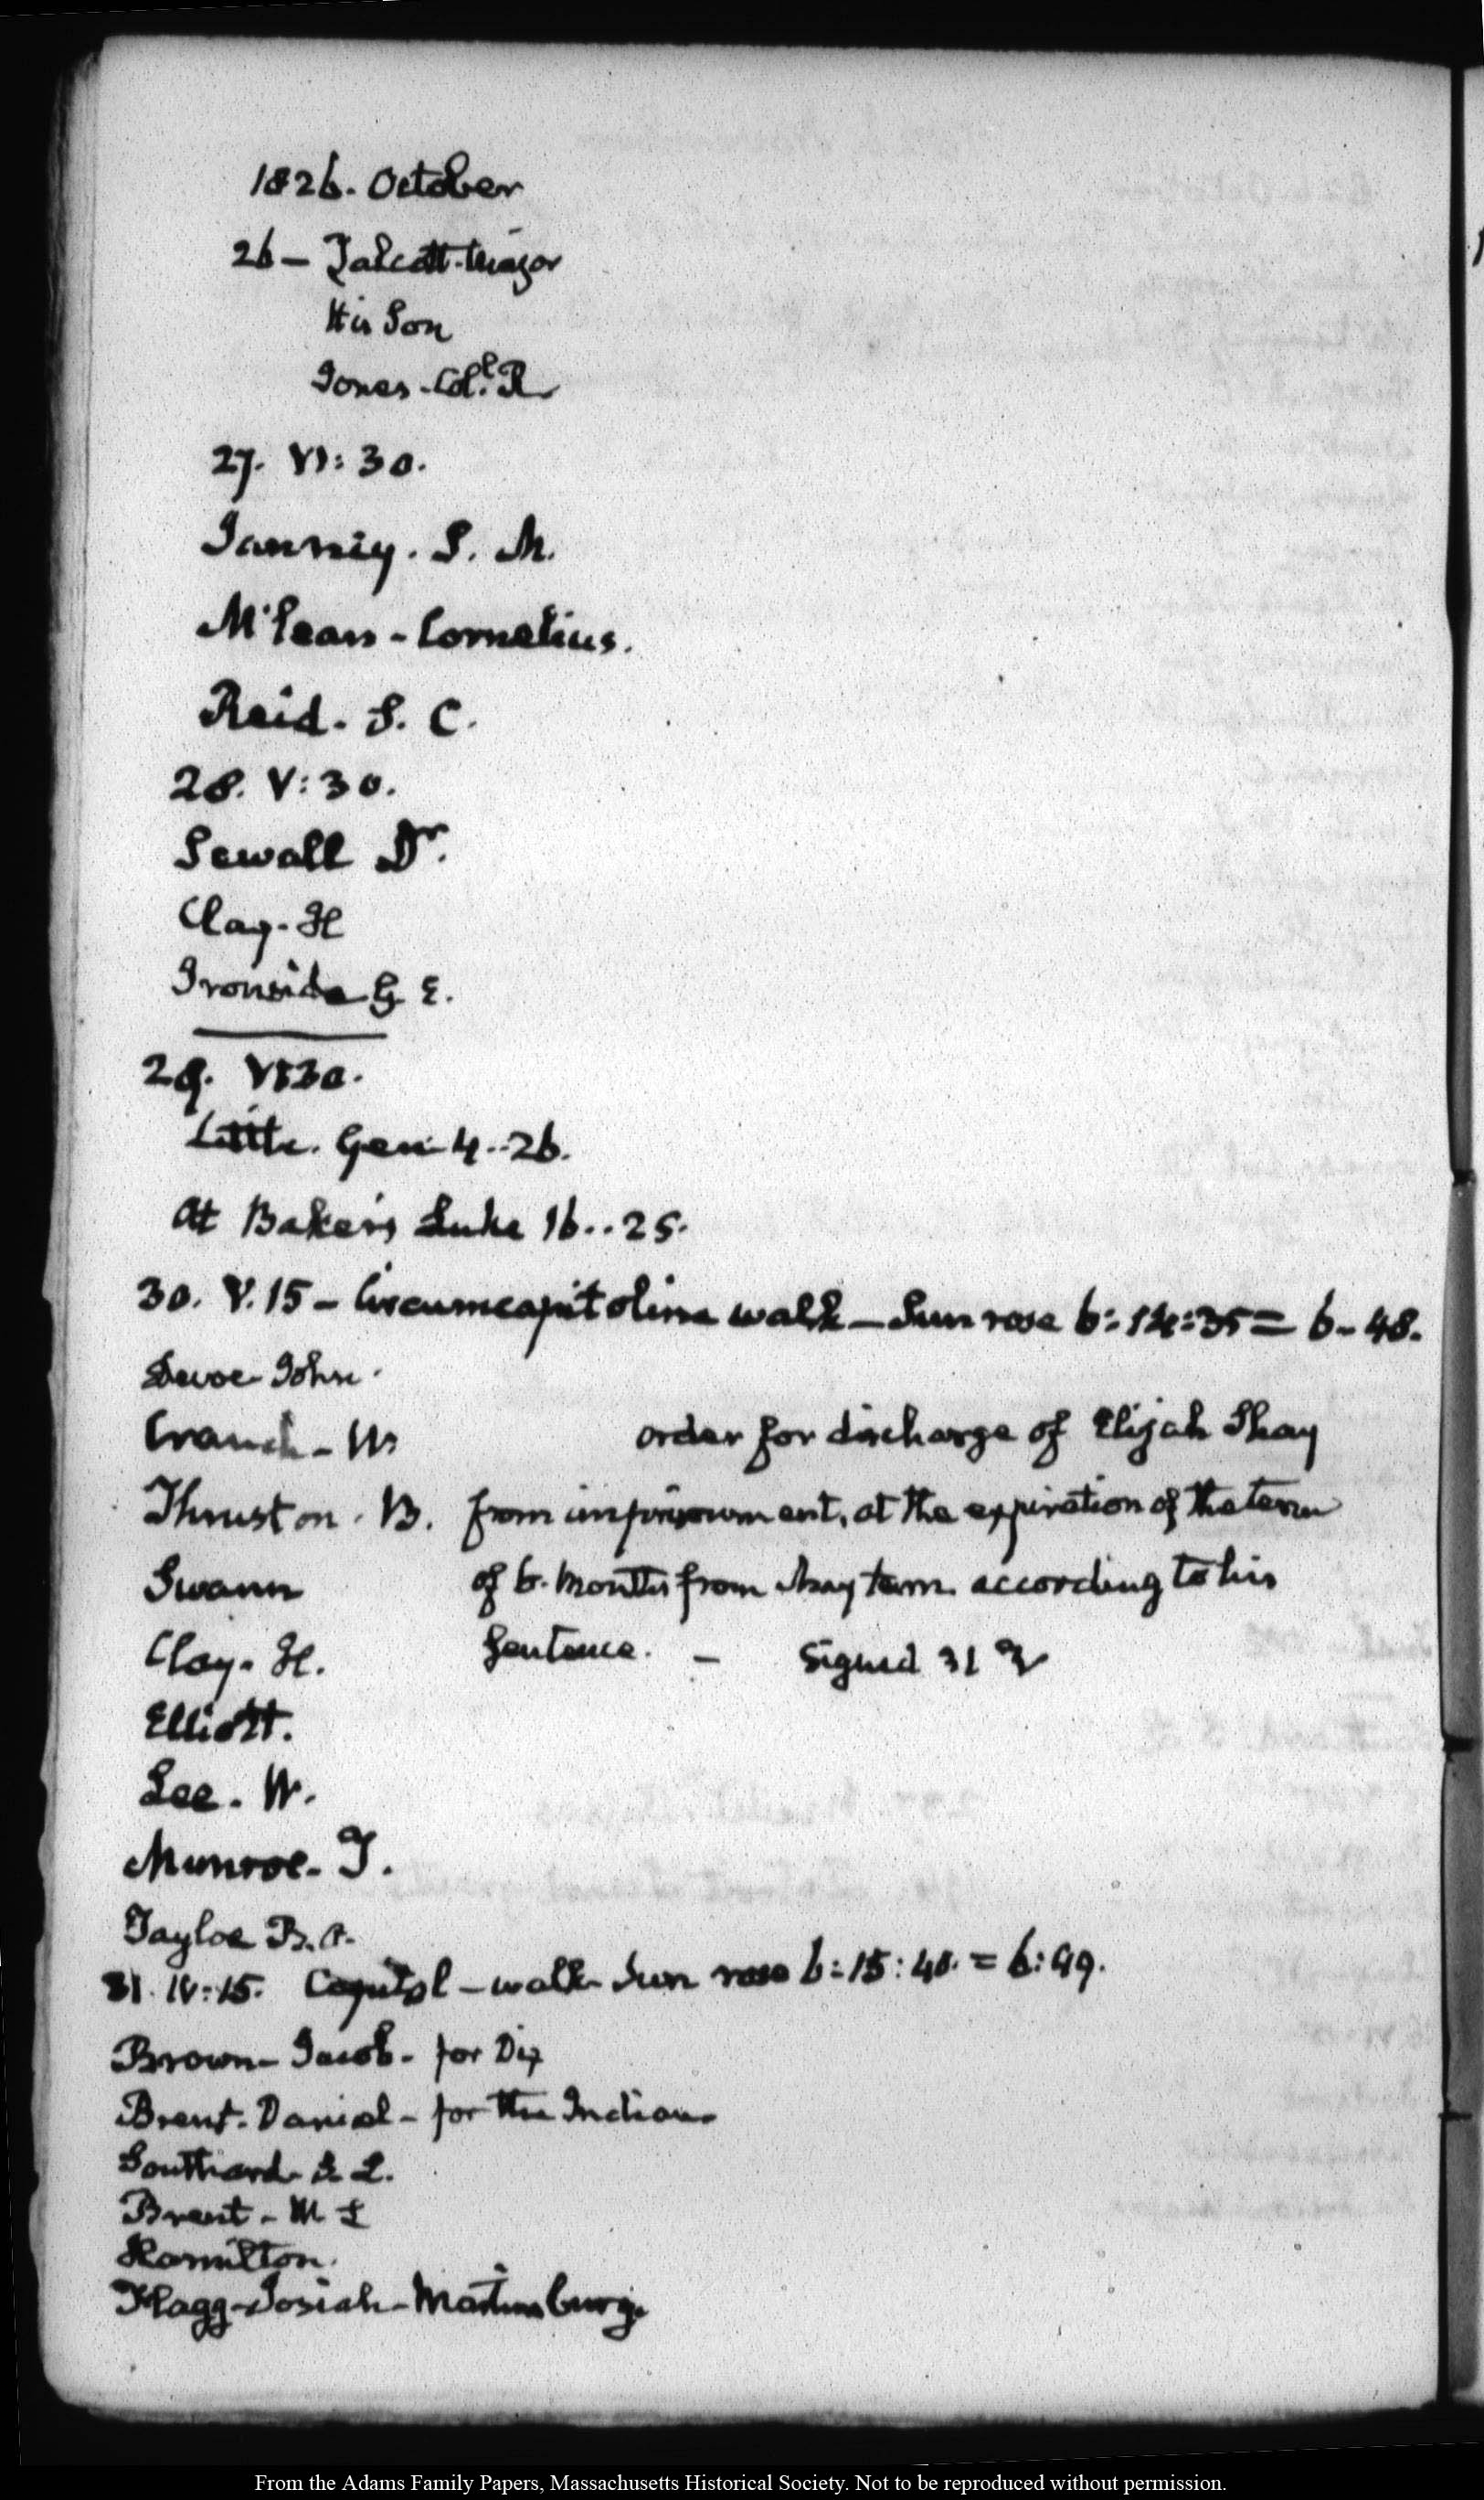 1826. October
26 — Talcott. Major
His Son
Jones. Col.l R
27. VI: 30.
Janney. S. M.
M'Lean - Cornelius.
Reid. S. C.
28. V: 30.
Sewall Dr.
Clay. H
Ironside G E.
29. V:30.
Little. Gen 4..26.
At Baker's Luke 16..25.
30. V. 15 — Circumcapitoline walk — Sun rose 6: 14:35 = 6-48.
Devoe John.
Cranch - W order for discharge of Elijah Shay
Thruston. B. from imprisonment, at the expiration of the term
Swann of 6. Months from May term according to his
Clay. H. Sentence. — Signed 31
Elliott.
Lee. W.
Munroe. T.
Tayloe B. O.
31. IV:15. Capitol - walk Sun rose 6:15:40. = 6:49.
Brown - Jacob. for
Brent. Daniel - for the Indians
Southard S. L.
Brent - W L
Hamilton.
Flagg - Josiah - Martinsburg.
From the Adams Family Papers, Massachusetts Historical Society. Not to be reproduced without permission.